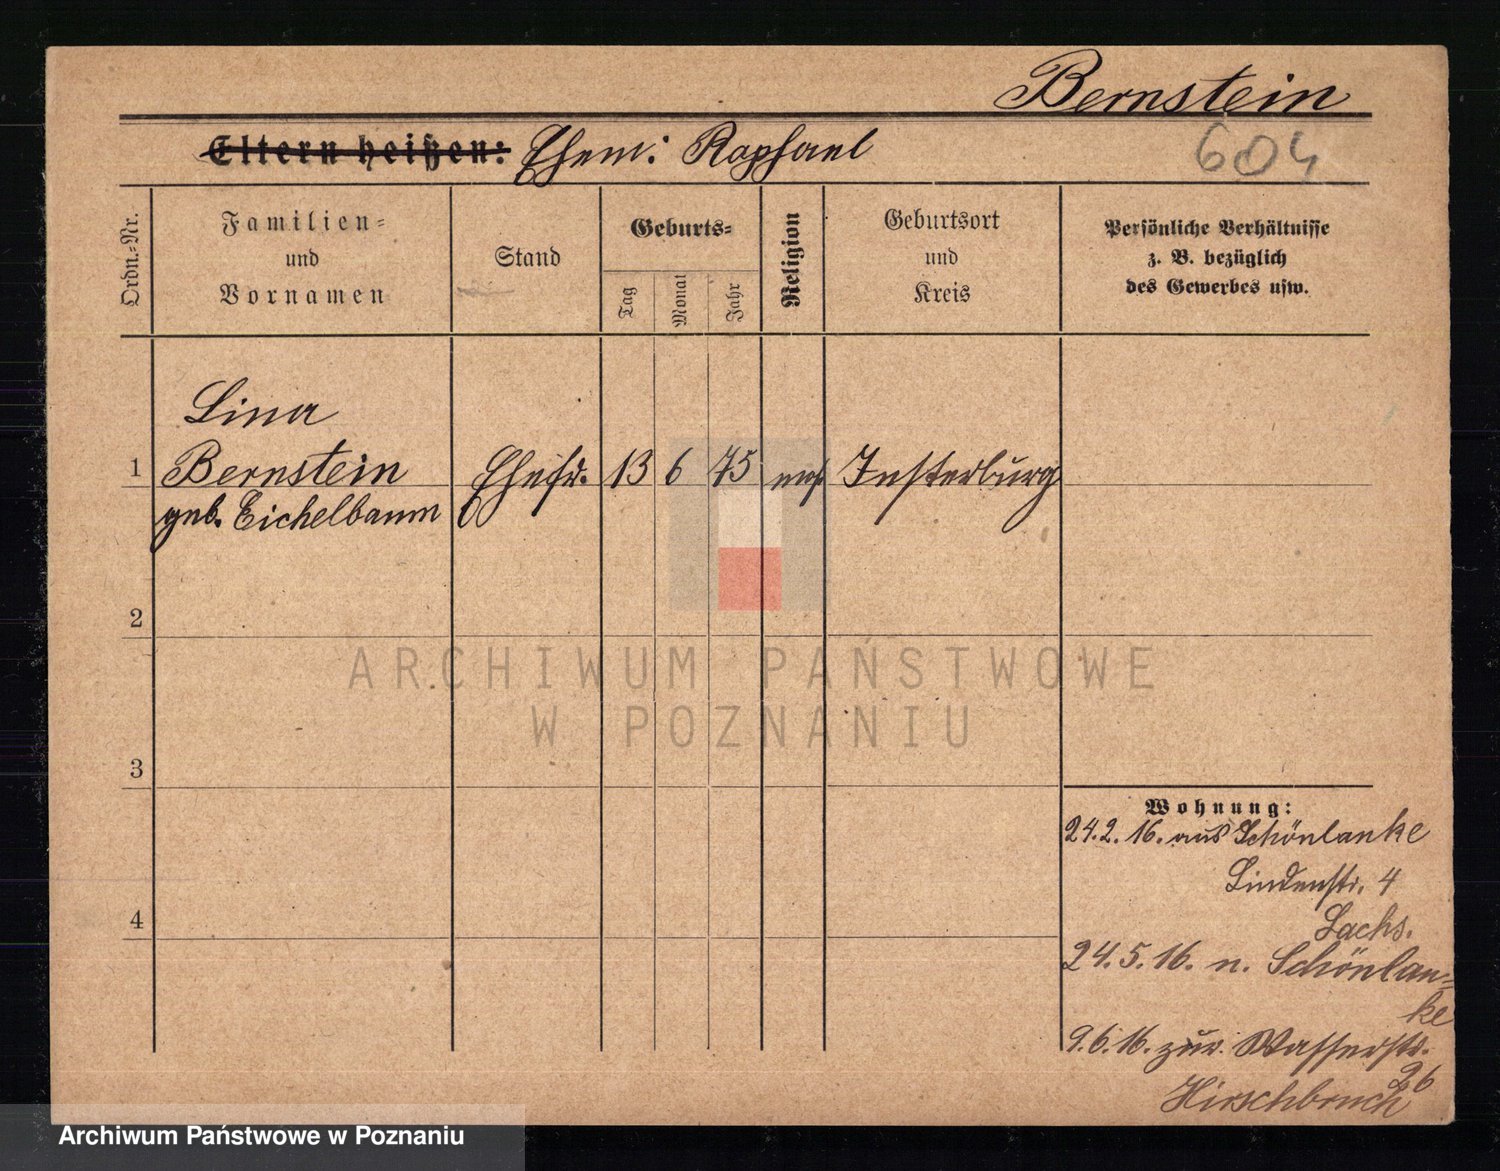 Bernstein
Eltern heißen: Ehem: Raphael
604
Ordn.-Nr.
Familien-
und
Vornamen
Stand
Geburts-
Tag
Monat
Jahr
Religion
Geburtsort
und
Kreis
Persönliche Verhältnisse
z. B. bezüglich
des Gewerbes usw.
Lina
1 Bernstein Ehefr. 13 6 75 mos. Insterburg
geb. Eichelbaum
2
ARCHIWUM PAŃSTWOWE
W POZNANIU
3
Wohnung:
24.2.16. aus Schönlanke
Lindenstr. 4
Sachs.
4
24.5.16. n. Schönlan-
ke
9.6.16. zur. Wasserstr.
26
Hirschbruch
Archiwum Państwowe w Poznaniu